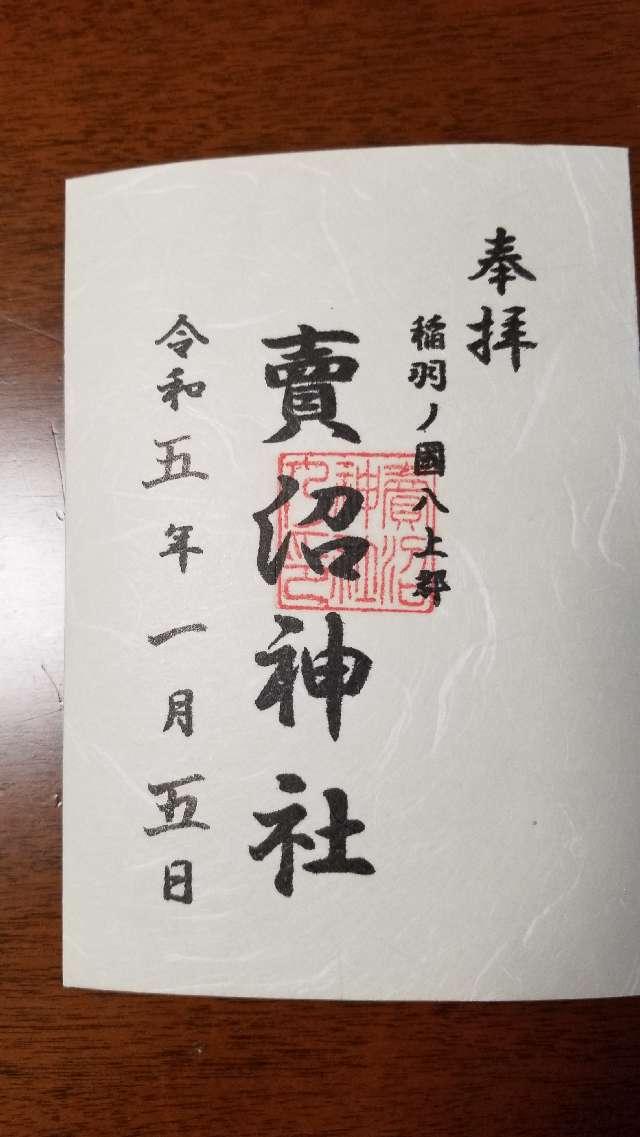 奉拝
稲羽ノ國八上郡
賣沼神社
賣沼
神社
令和五年一月五日